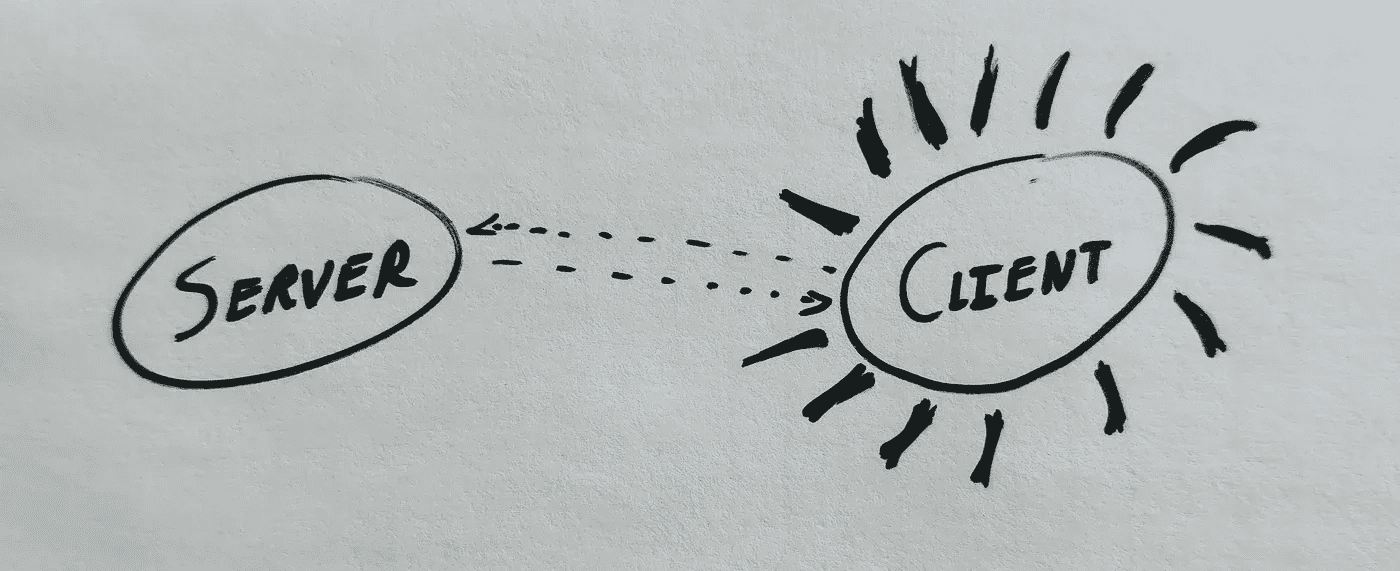 SERVER
CLIENT